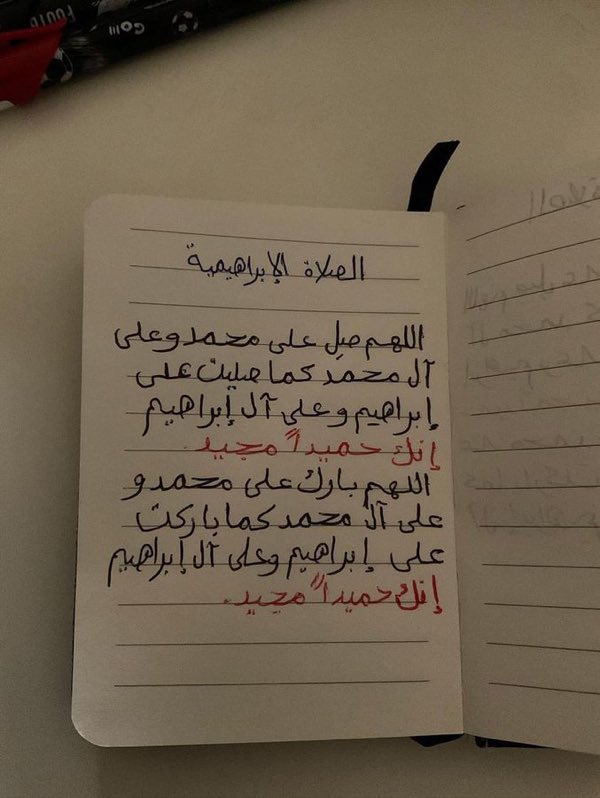 GOAL
FOOTB
الصلاة الإبراهيمية
اللهم صلِ على محمد وعلى
آل محمد كما صليت على
إبراهيم وعلى آل إبراهيم
إنك حميداً مجيد.
اللهم بارك على محمد و
على آل محمد كما باركت
على إبراهيم وعلى آل إبراهيم
إنك حميداً مجيد.